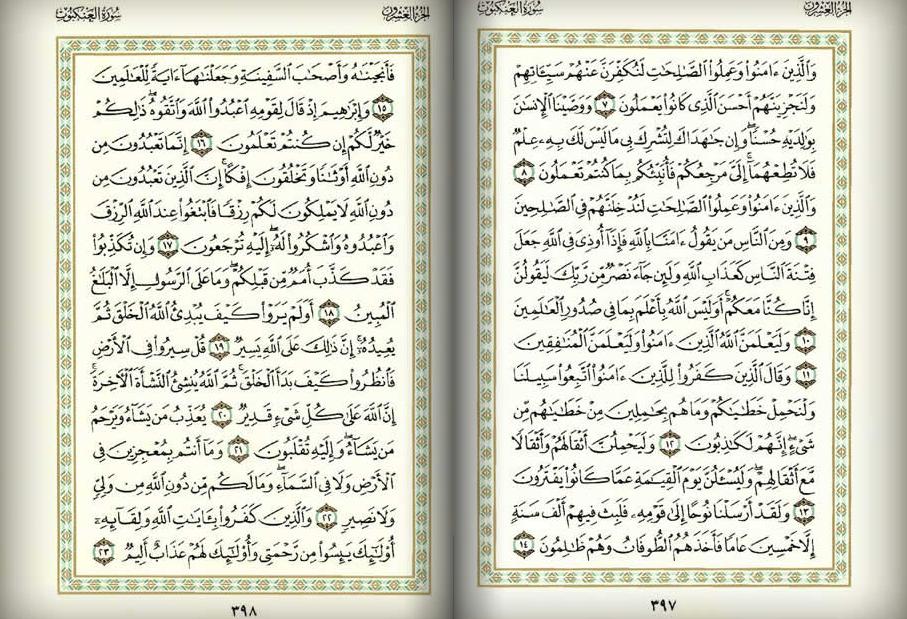 الجزء العشرون
سورة العنكبوت
وَٱلَّذِينَ ءَامَنُوا۟ وَعَمِلُوا۟ ٱلصَّـٰلِحَـٰتِ لَنُكَفِّرَنَّ عَنْهُمْ سَيِّـَٔاتِهِمْ
وَلَنَجْزِيَنَّهُمْ أَحْسَنَ ٱلَّذِى كَانُوا۟ يَعْمَلُونَ ٧ وَوَصَّيْنَا ٱلْإِنسَـٰنَ
بِوَٰلِدَيْهِ حُسْنًا ۖ وَإِن جَـٰهَدَاكَ لِتُشْرِكَ بِى مَا لَيْسَ لَكَ بِهِۦ عِلْمٌ
فَلَا تُطِعْهُمَآ ۚ إِلَىَّ مَرْجِعُكُمْ فَأُنَبِّئُكُم بِمَا كُنتُمْ تَعْمَلُونَ ٨
وَٱلَّذِينَ ءَامَنُوا۟ وَعَمِلُوا۟ ٱلصَّـٰلِحَـٰتِ لَنُدْخِلَنَّهُمْ فِى ٱلصَّـٰلِحِينَ
٩ وَمِنَ ٱلنَّاسِ مَن يَقُولُ ءَامَنَّا بِٱللَّهِ فَإِذَآ أُوذِىَ فِى ٱللَّهِ جَعَلَ
فِتْنَةَ ٱلنَّاسِ كَعَذَابِ ٱللَّهِ وَلَئِن جَآءَ نَصْرٌ مِّن رَّبِّكَ لَيَقُولُنَّ
إِنَّا كُنَّا مَعَكُمْ ۚ أَوَلَيْسَ ٱللَّهُ بِأَعْلَمَ بِمَا فِى صُدُورِ ٱلْعَـٰلَمِينَ
١٠ وَلَيَعْلَمَنَّ ٱللَّهُ ٱلَّذِينَ ءَامَنُوا۟ وَلَيَعْلَمَنَّ ٱلْمُنَـٰفِقِينَ
١١ وَقَالَ ٱلَّذِينَ كَفَرُوا۟ لِلَّذِينَ ءَامَنُوا۟ ٱتَّبِعُوا۟ سَبِيلَنَا
وَلْنَحْمِلْ خَطَـٰيَـٰكُمْ وَمَا هُم بِحَـٰمِلِينَ مِنْ خَطَـٰيَـٰهُم مِّن
شَىْءٍ ۖ إِنَّهُمْ لَكَـٰذِبُونَ ١٢ وَلَيَحْمِلُنَّ أَثْقَالَهُمْ وَأَثْقَالًا
مَّعَ أَثْقَالِهِمْ ۖ وَلَيُسْـَٔلُنَّ يَوْمَ ٱلْقِيَـٰمَةِ عَمَّا كَانُوا۟ يَفْتَرُونَ
١٣ وَلَقَدْ أَرْسَلْنَا نُوحًا إِلَىٰ قَوْمِهِۦ فَلَبِثَ فِيهِمْ أَلْفَ سَنَةٍ
إِلَّا خَمْسِينَ عَامًا فَأَخَذَهُمُ ٱلطُّوفَانُ وَهُمْ ظَـٰلِمُونَ ١٤
٣٩٧
الجزء العشرون
سورة العنكبوت
فَأَنجَيْنَـٰهُ وَأَصْحَـٰبَ ٱلسَّفِينَةِ وَجَعَلْنَـٰهَآ ءَايَةً لِّلْعَـٰلَمِينَ
١٥ وَإِبْرَٰهِيمَ إِذْ قَالَ لِقَوْمِهِ ٱعْبُدُوا۟ ٱللَّهَ وَٱتَّقُوهُ ۖ ذَٰلِكُمْ
خَيْرٌ لَّكُمْ إِن كُنتُمْ تَعْلَمُونَ ١٦ إِنَّمَا تَعْبُدُونَ مِن
دُونِ ٱللَّهِ أَوْثَـٰنًا وَتَخْلُقُونَ إِفْكًا ۚ إِنَّ ٱلَّذِينَ تَعْبُدُونَ مِن
دُونِ ٱللَّهِ لَا يَمْلِكُونَ لَكُمْ رِزْقًا فَٱبْتَغُوا۟ عِندَ ٱللَّهِ ٱلرِّزْقَ
وَٱعْبُدُوهُ وَٱشْكُرُوا۟ لَهُۥٓ ۖ إِلَيْهِ تُرْجَعُونَ ١٧ وَإِن تُكَذِّبُوا۟
فَقَدْ كَذَّبَ أُمَمٌ مِّن قَبْلِكُمْ ۖ وَمَا عَلَى ٱلرَّسُولِ إِلَّا ٱلْبَلَـٰغُ
ٱلْمُبِينُ ١٨ أَوَلَمْ يَرَوْا۟ كَيْفَ يُبْدِئُ ٱللَّهُ ٱلْخَلْقَ ثُمَّ
يُعِيدُهُۥٓ ۚ إِنَّ ذَٰلِكَ عَلَى ٱللَّهِ يَسِيرٌ ١٩ قُلْ سِيرُوا۟ فِى ٱلْأَرْضِ
فَٱنظُرُوا۟ كَيْفَ بَدَأَ ٱلْخَلْقَ ۚ ثُمَّ ٱللَّهُ يُنشِئُ ٱلنَّشْأَةَ ٱلْـَٔاخِرَةَ ۚ
إِنَّ ٱللَّهَ عَلَىٰ كُلِّ شَىْءٍ قَدِيرٌ ٢٠ يُعَذِّبُ مَن يَشَآءُ وَيَرْحَمُ
مَن يَشَآءُ ۖ وَإِلَيْهِ تُقْلَبُونَ ٢١ وَمَآ أَنتُم بِمُعْجِزِينَ فِى
ٱلْأَرْضِ وَلَا فِى ٱلسَّمَآءِ ۖ وَمَا لَكُم مِّن دُونِ ٱللَّهِ مِن وَلِىٍّ
وَلَا نَصِيرٍ ٢٢ وَٱلَّذِينَ كَفَرُوا۟ بِـَٔايَـٰتِ ٱللَّهِ وَلِقَآئِهِۦٓ
أُو۟لَـٰٓئِكَ يَئِسُوا۟ مِن رَّحْمَتِى وَأُو۟لَـٰٓئِكَ لَهُمْ عَذَابٌ أَلِيمٌ ٢٣
٣٩٨